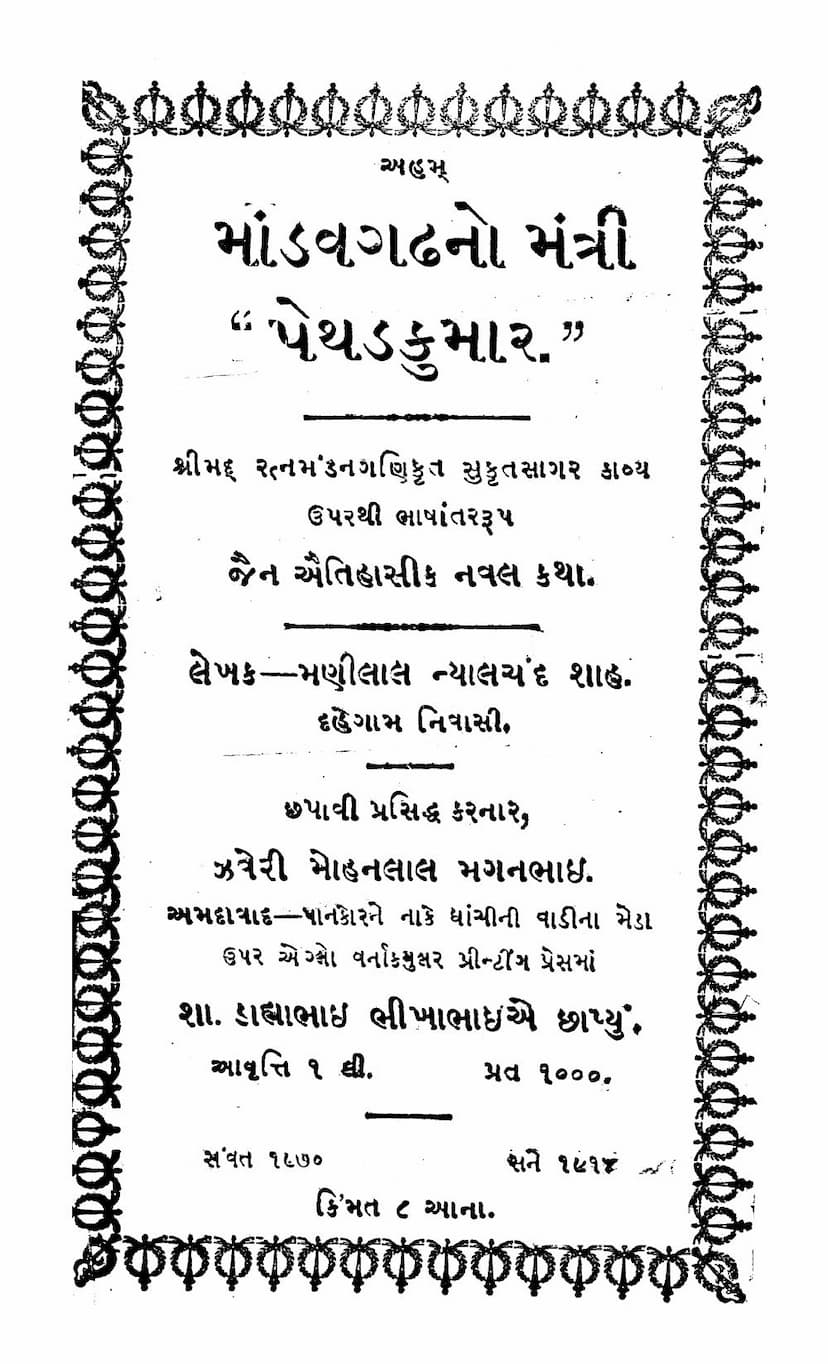 અહમ્
માંડવગઢનો મંત્રી
“પેથડકુમાર.”
શ્રીમદ્ રત્નમંડનગણિકૃત સુકૃતસાગર કાવ્ય
ઉપરથી ભાષાંતરરૂપ
જૈન ઐતિહાસીક નવલ કથા.
લેખક—મણીલાલ ન્યાલચંદ શાહ.
દહેગામ નિવાસી.
છપાવી પ્રસિદ્ધ કરનાર,
ઝવેરી મોહનલાલ મગનભાઇ.
અમદાવાદ—પાનકોરને નાકે ઘાંચીની વાડીના મેડા
ઉપર એંગ્લો વર્નાક્યુલર પ્રીન્ટીંગ પ્રેસમાં
શા. ડાહ્યાભાઇ ભીખાભાઇએ છાપ્યું.
આવૃત્તિ ૧ લી. પ્રત ૧૦૦૦.
સંવત ૧૯૭૦ સને ૧૯૧૪
કિંમત ૮ આના.